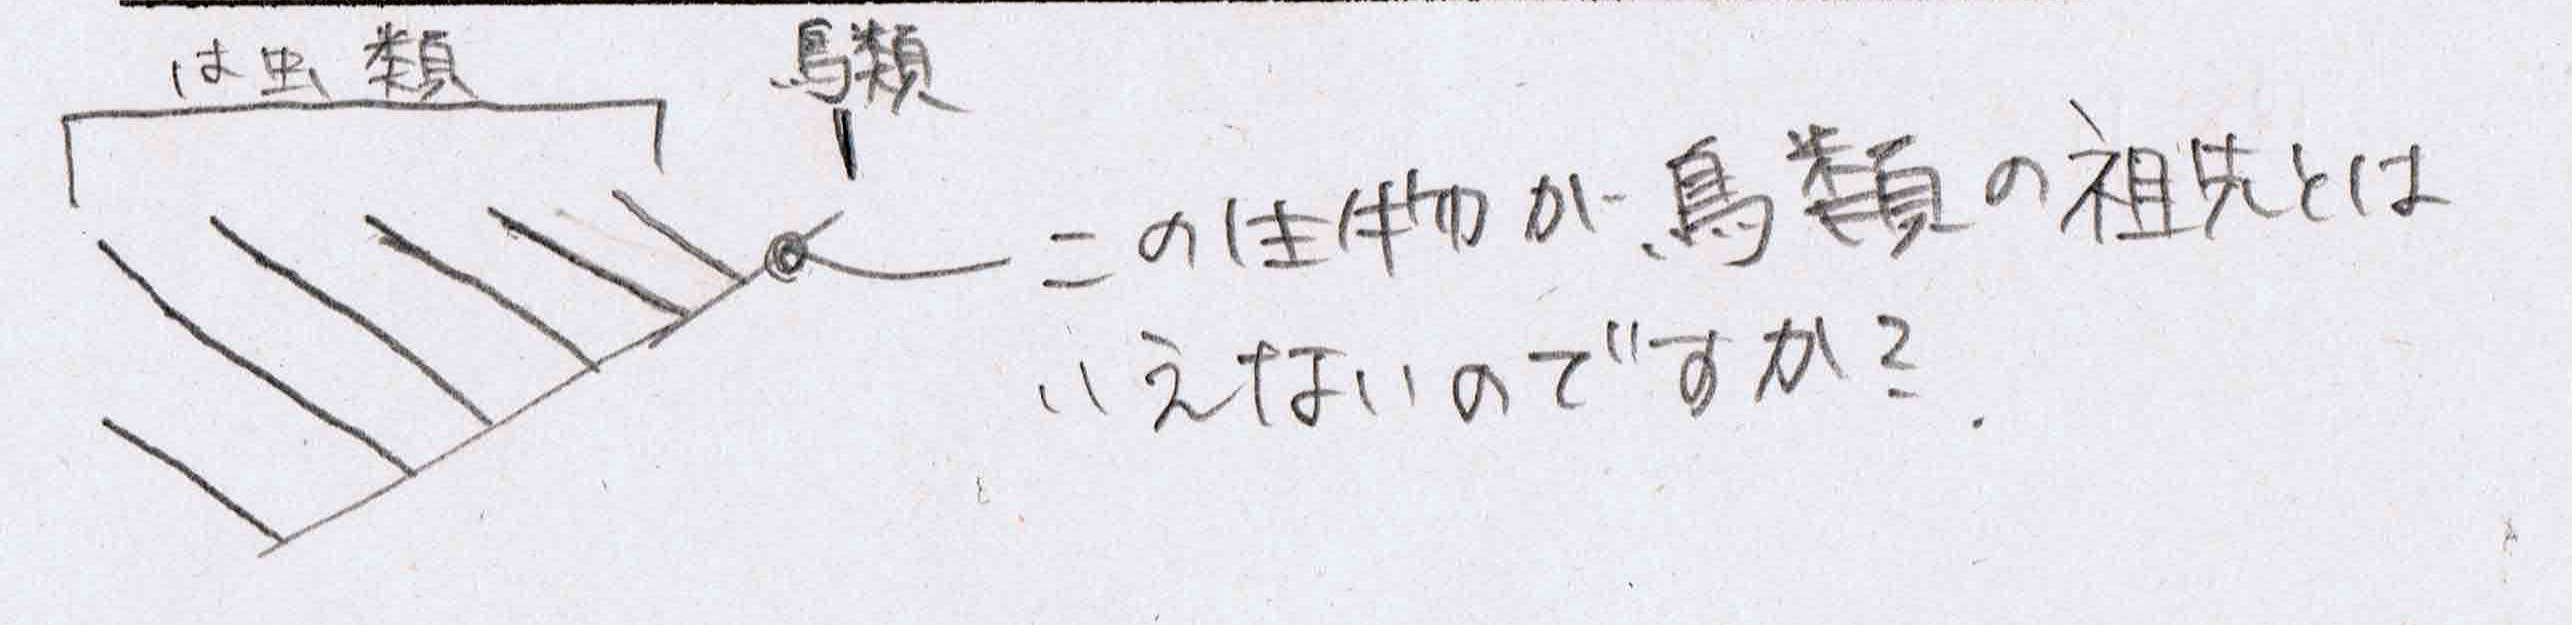 は虫類
鳥類
この生物が鳥類の祖先とは
いえないのですか?